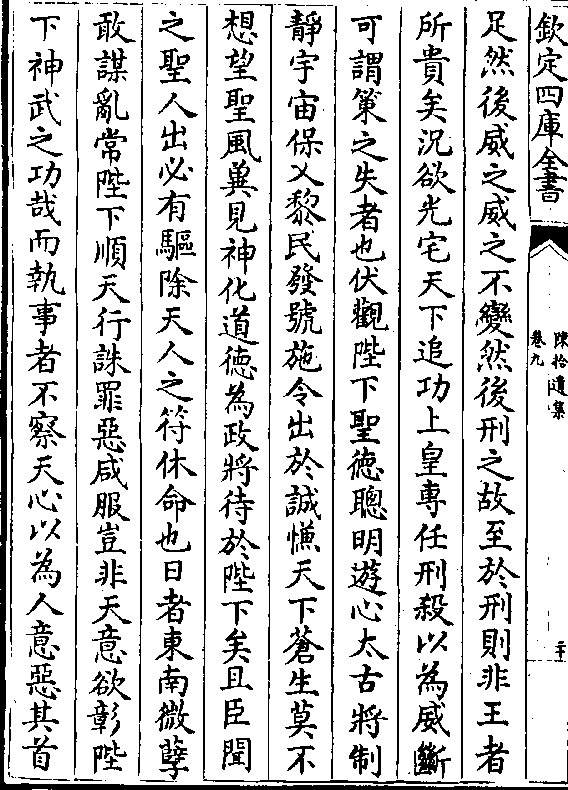 欽定四庫全書
陳拾遺集
卷九
二十
足然後威之威之不變然後刑之故至於刑則非王者
所貴矣況欲光宅天下追功上皇專任刑殺以為威斷
可謂策之失者也伏觀陛下聖德聰明遊心太古將制
靜宇宙保乂黎民發號施令出於誠慊天下蒼生莫不
想望聖風兾見神化道德為政將待於陛下矣且臣聞
之聖人出必有驅除天人之符休命也日者東南微孽
敢謀亂常陛下順天行誅罪惡咸服豈非天意欲彰陛
下神武之功哉而執事者不察天心以為人意惡其首